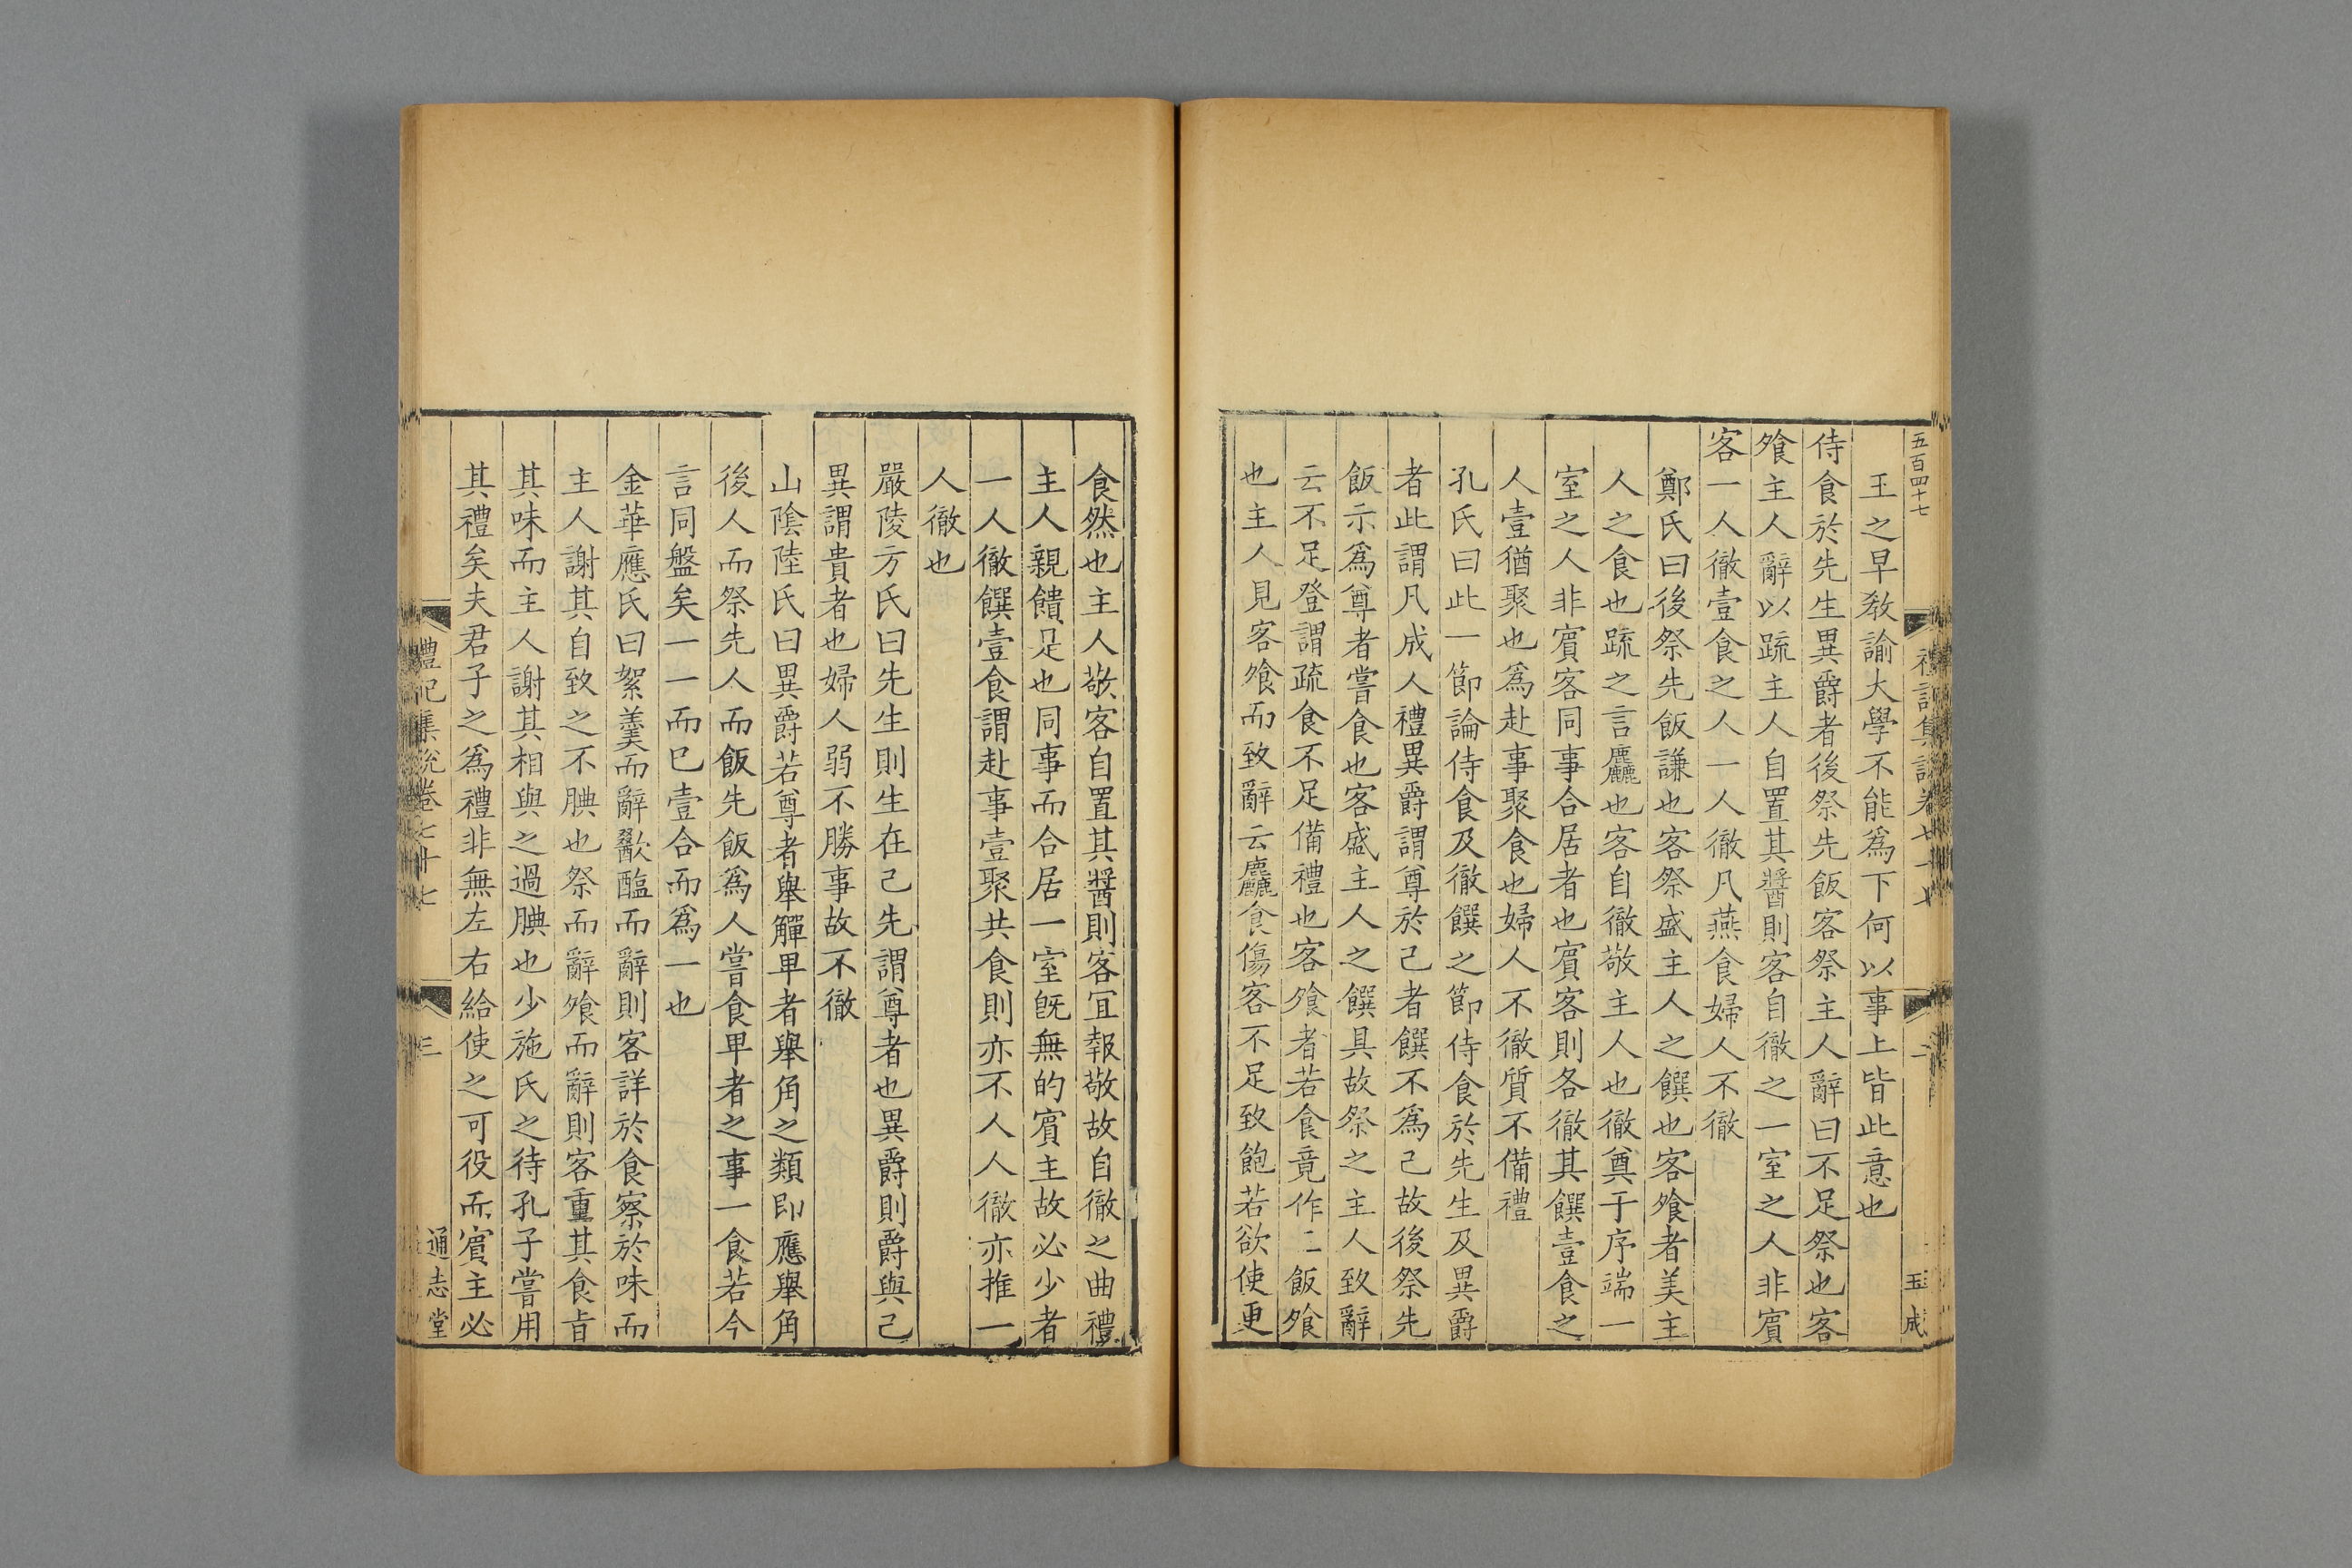 五百四十七
禮記集說卷七十七
二
玉成
王之早教諭大學不能爲下何以事上皆此意也
侍食於先生異爵者後祭先飯客祭主人辭曰不足祭也客
飧主人辭以疏主人自置其醬則客自徹之一室之人非賓
客一人徹壹食之人一人徹凡燕食婦人不徹
鄭氏曰後祭先飯謙也客祭盛主人之饌也客飧者美主
人之食也疏之言麤也客自徹敬主人也徹奠于序端一
室之人非賓客同事合居者也賓客則各徹其饌壹食之
人壹猶聚也爲赴事聚食也婦人不徹質不備禮
孔氏曰此一節論侍食及徹饌之節侍食於先生及異爵
者此謂凡成人禮異爵謂尊於己者饌不爲己故後祭先
飯示爲尊者嘗食也客盛主人之饌具故祭之主人致辭
云不足登謂疏食不足備禮也客飧者若食竟作三飯飧
也主人見客飧而致辭云麤食傷客不足致飽若欲使更
食然也主人敬客自置其醬則客宜報敬故自徹之曲禮
主人親饋是也同事而合居一室旣無的賓主故必少者
一人徹饌壹食謂赴事壹聚共食則亦不人人徹亦推一
人徹也
嚴陵方氏曰先生則生在己先謂尊者也異爵則爵與己
異謂貴者也婦人弱不勝事故不徹
山陰陸氏曰異爵若尊者舉觶卑者舉角之類即應舉角
後人而祭先人而飯先飯爲人嘗食卑者之事一食若今
言同盤矣一一而已壹合而爲一也
金華應氏曰絮羹而辭歠醢而辭則客詳於食察於味而
主人謝其自致之不腆也祭而辭飧而辭則客重其食旨
其味而主人謝其相與之過腆也少施氏之待孔子嘗用
其禮矣夫君子之爲禮非無左右給使之可役而賓主必
禮記集說卷七十七
三
通志堂